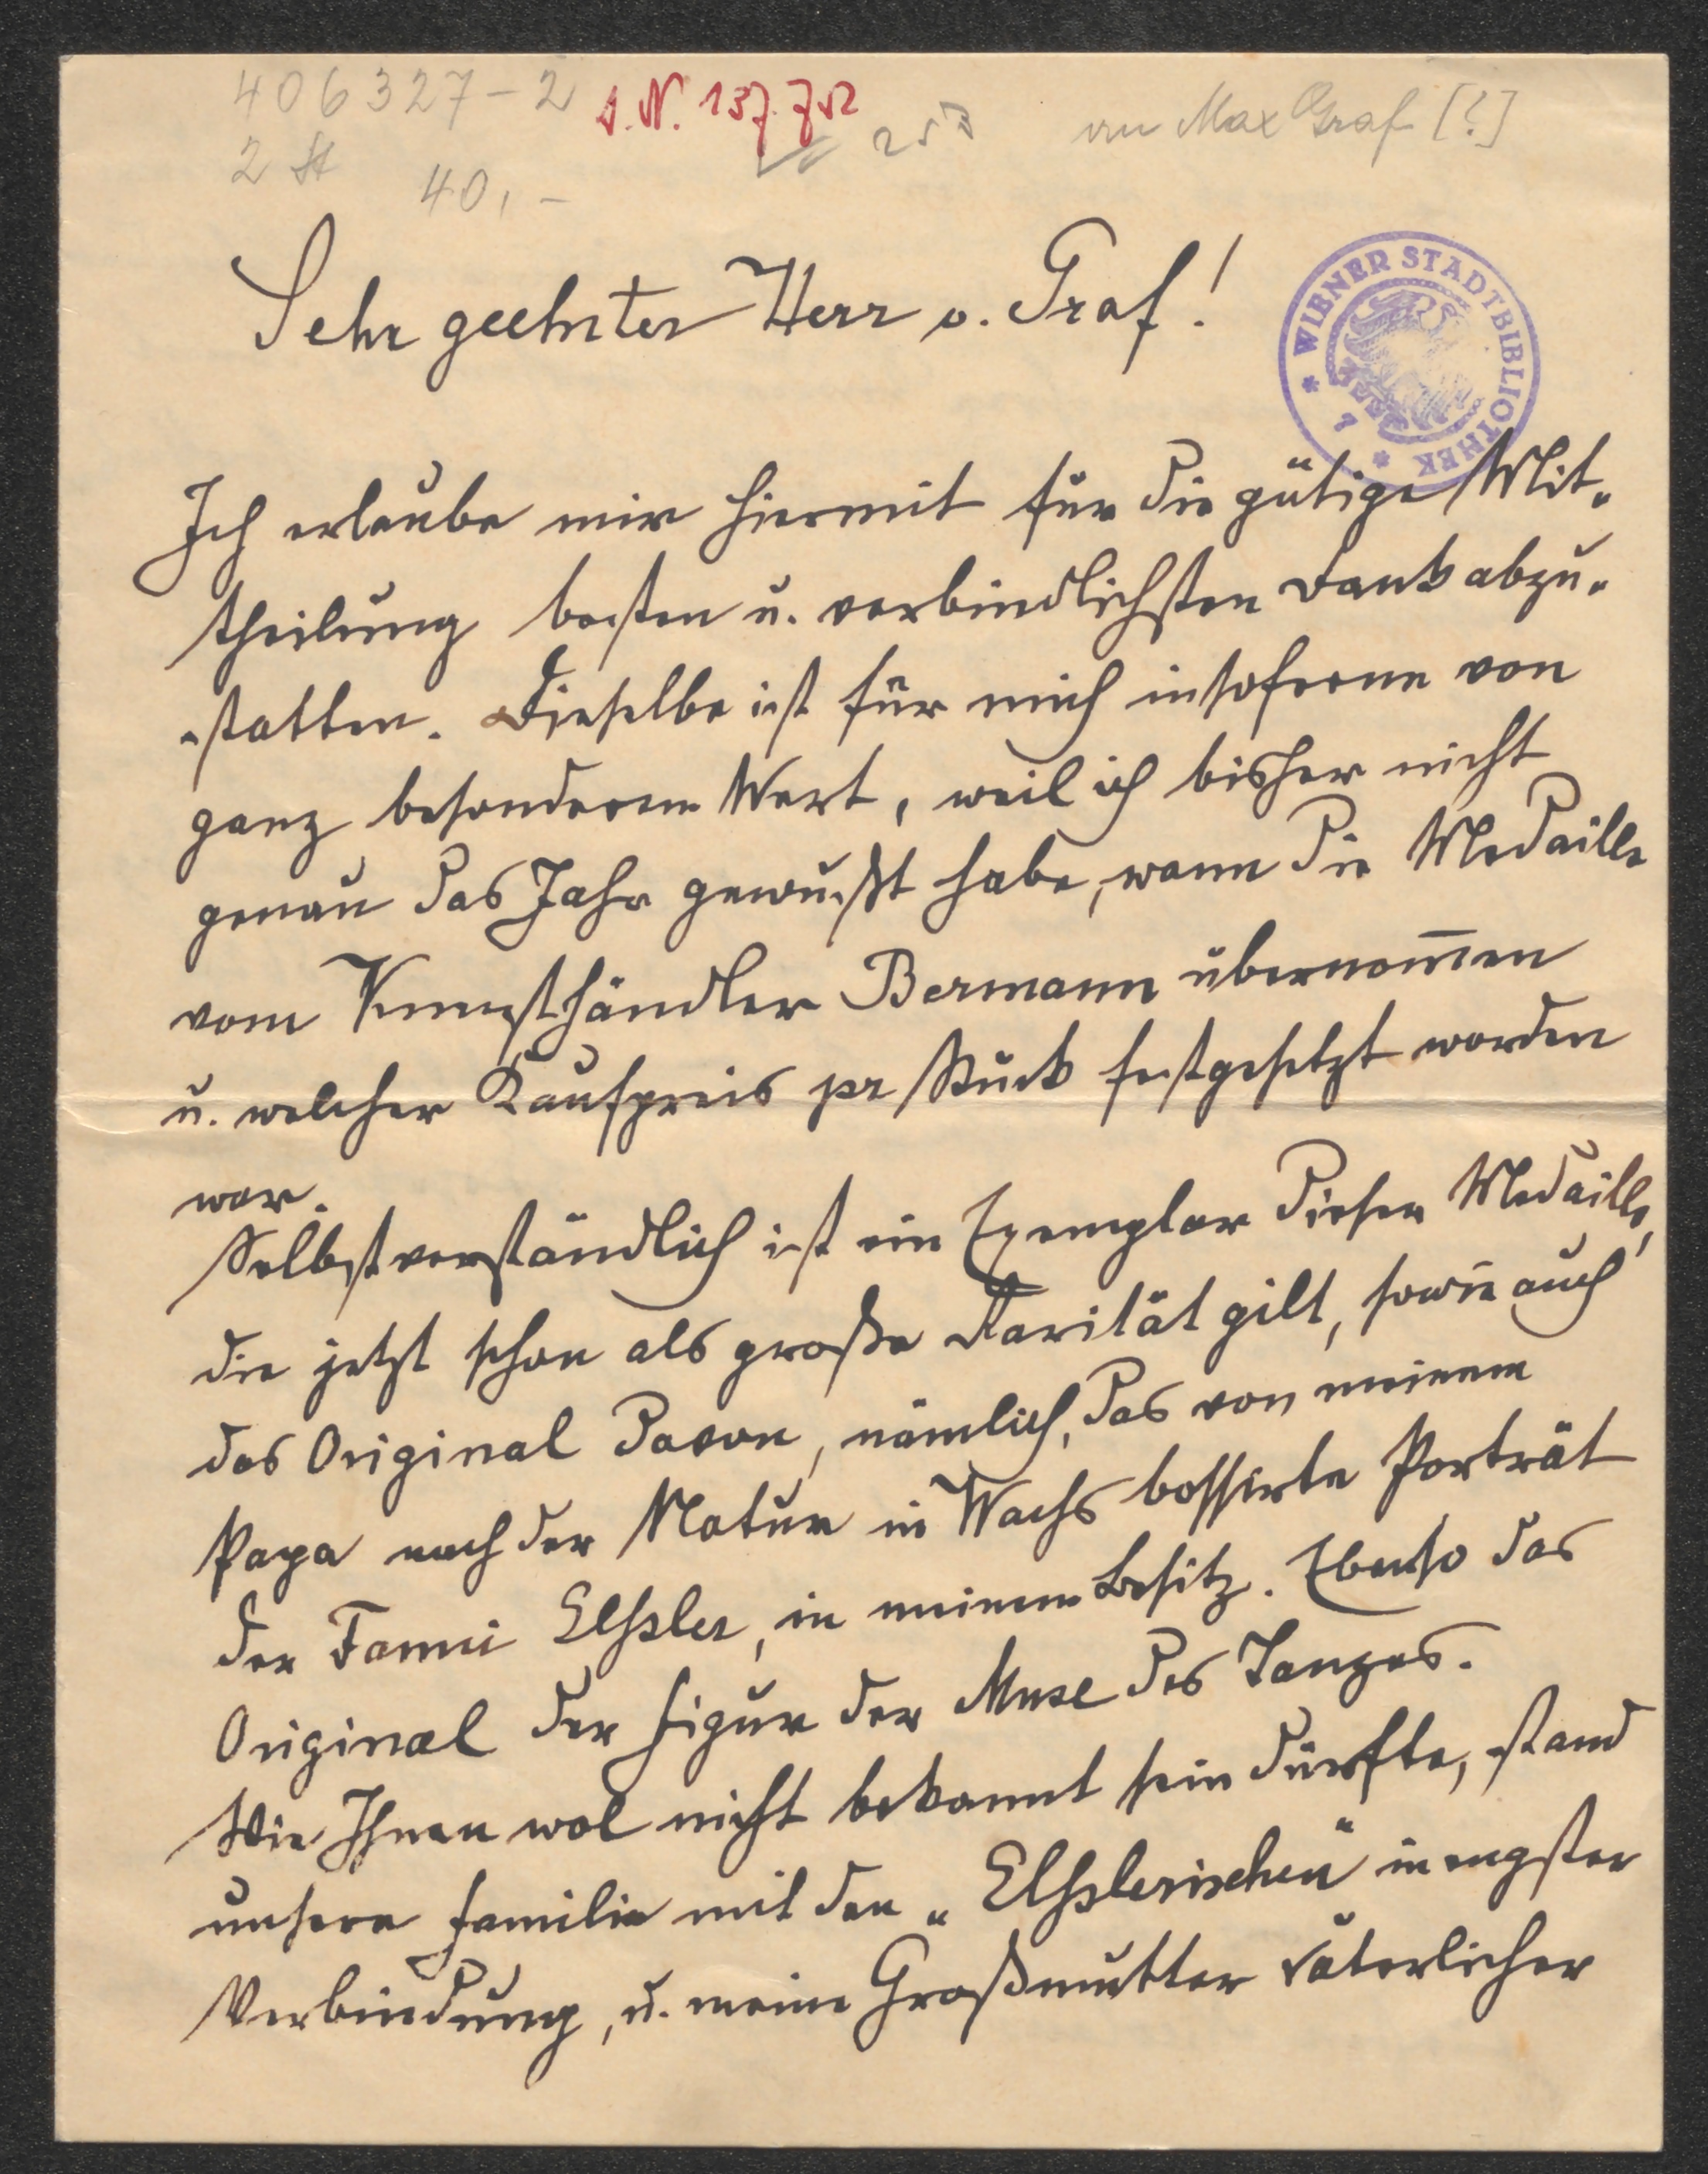 406327-2 I.N. 137.752 253 an Max Graf [?]
2 St 40,-
Sehr geehrter Herr v. Graf!
WIENER STADTBIBLIOTHEK
Ich erlaube mir hiermit für die gütige Mit-
theilung besten u. verbindlichsten Dank abzu-
statten. Dieselbe ist für mich insoferne von
ganz besonderem Wert, weil ich bisher nicht
genau das Jahr gewußt habe, wann die Medaille
vom Kunsthändler Bermann übernom̅en
u. welcher Kaufpreis pr Stück festgesetzt worden
war.
Selbstverständlich ist ein Exemplar dieser Medaille,
die jetzt schon als große Rarität gilt, sowie auch
das Original davon, nämlich, das von meinem
Papa nach der Natur in Wachs bossirte Porträt
der Fanni Elßsler, in meinem Besitz. Ebenso das
Original der Figur der Muse des Tanzes.
Wie Ihnen wol nicht bekannt sein dürfte, stand
unsere Familie mit den „Elßslerischen" in engster
Verbindung, u. meine Großmutter väterlicher